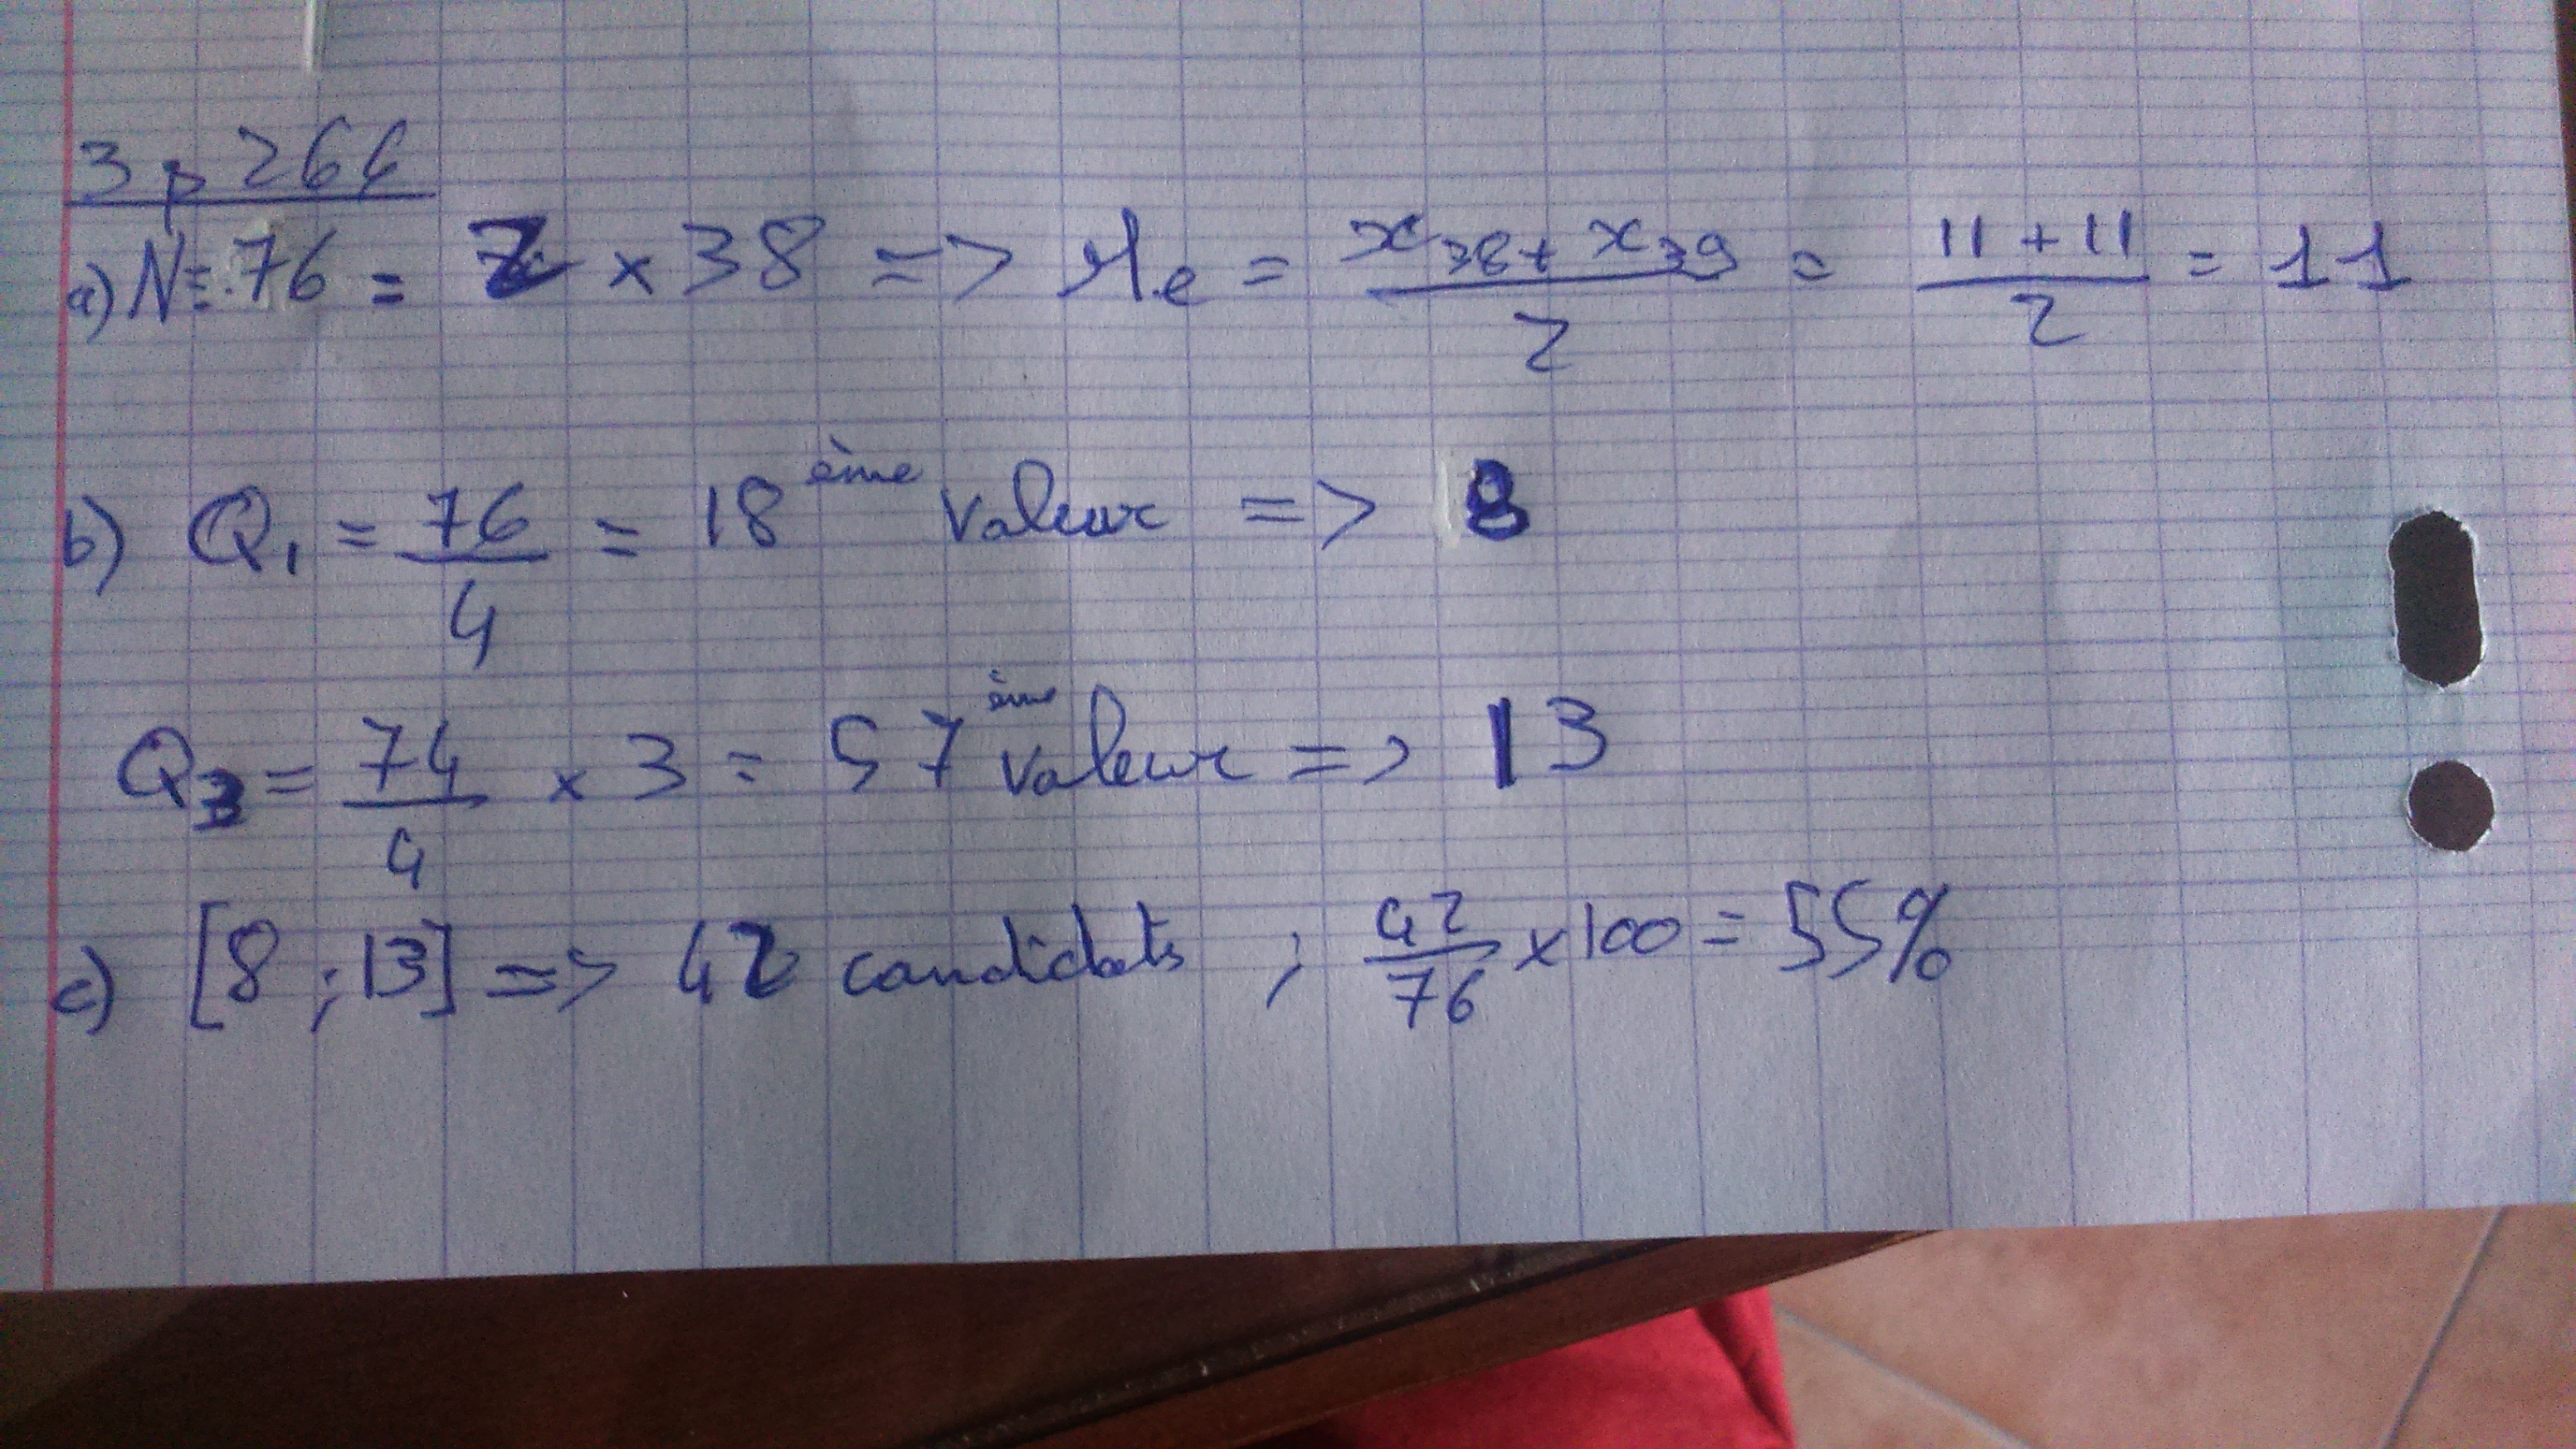 3 p 264
a) N = 76 = 2 × 38 => Me = (x38 + x39)/2 = (11 + 11)/2 = 11
b) Q1 = 76/4 = 18 ème valeur => 8
Q3 = 74/4 × 3 = 57 ème valeur => 13
c) [8 ; 13] => 42 candidats ; 42/76 × 100 = 55%